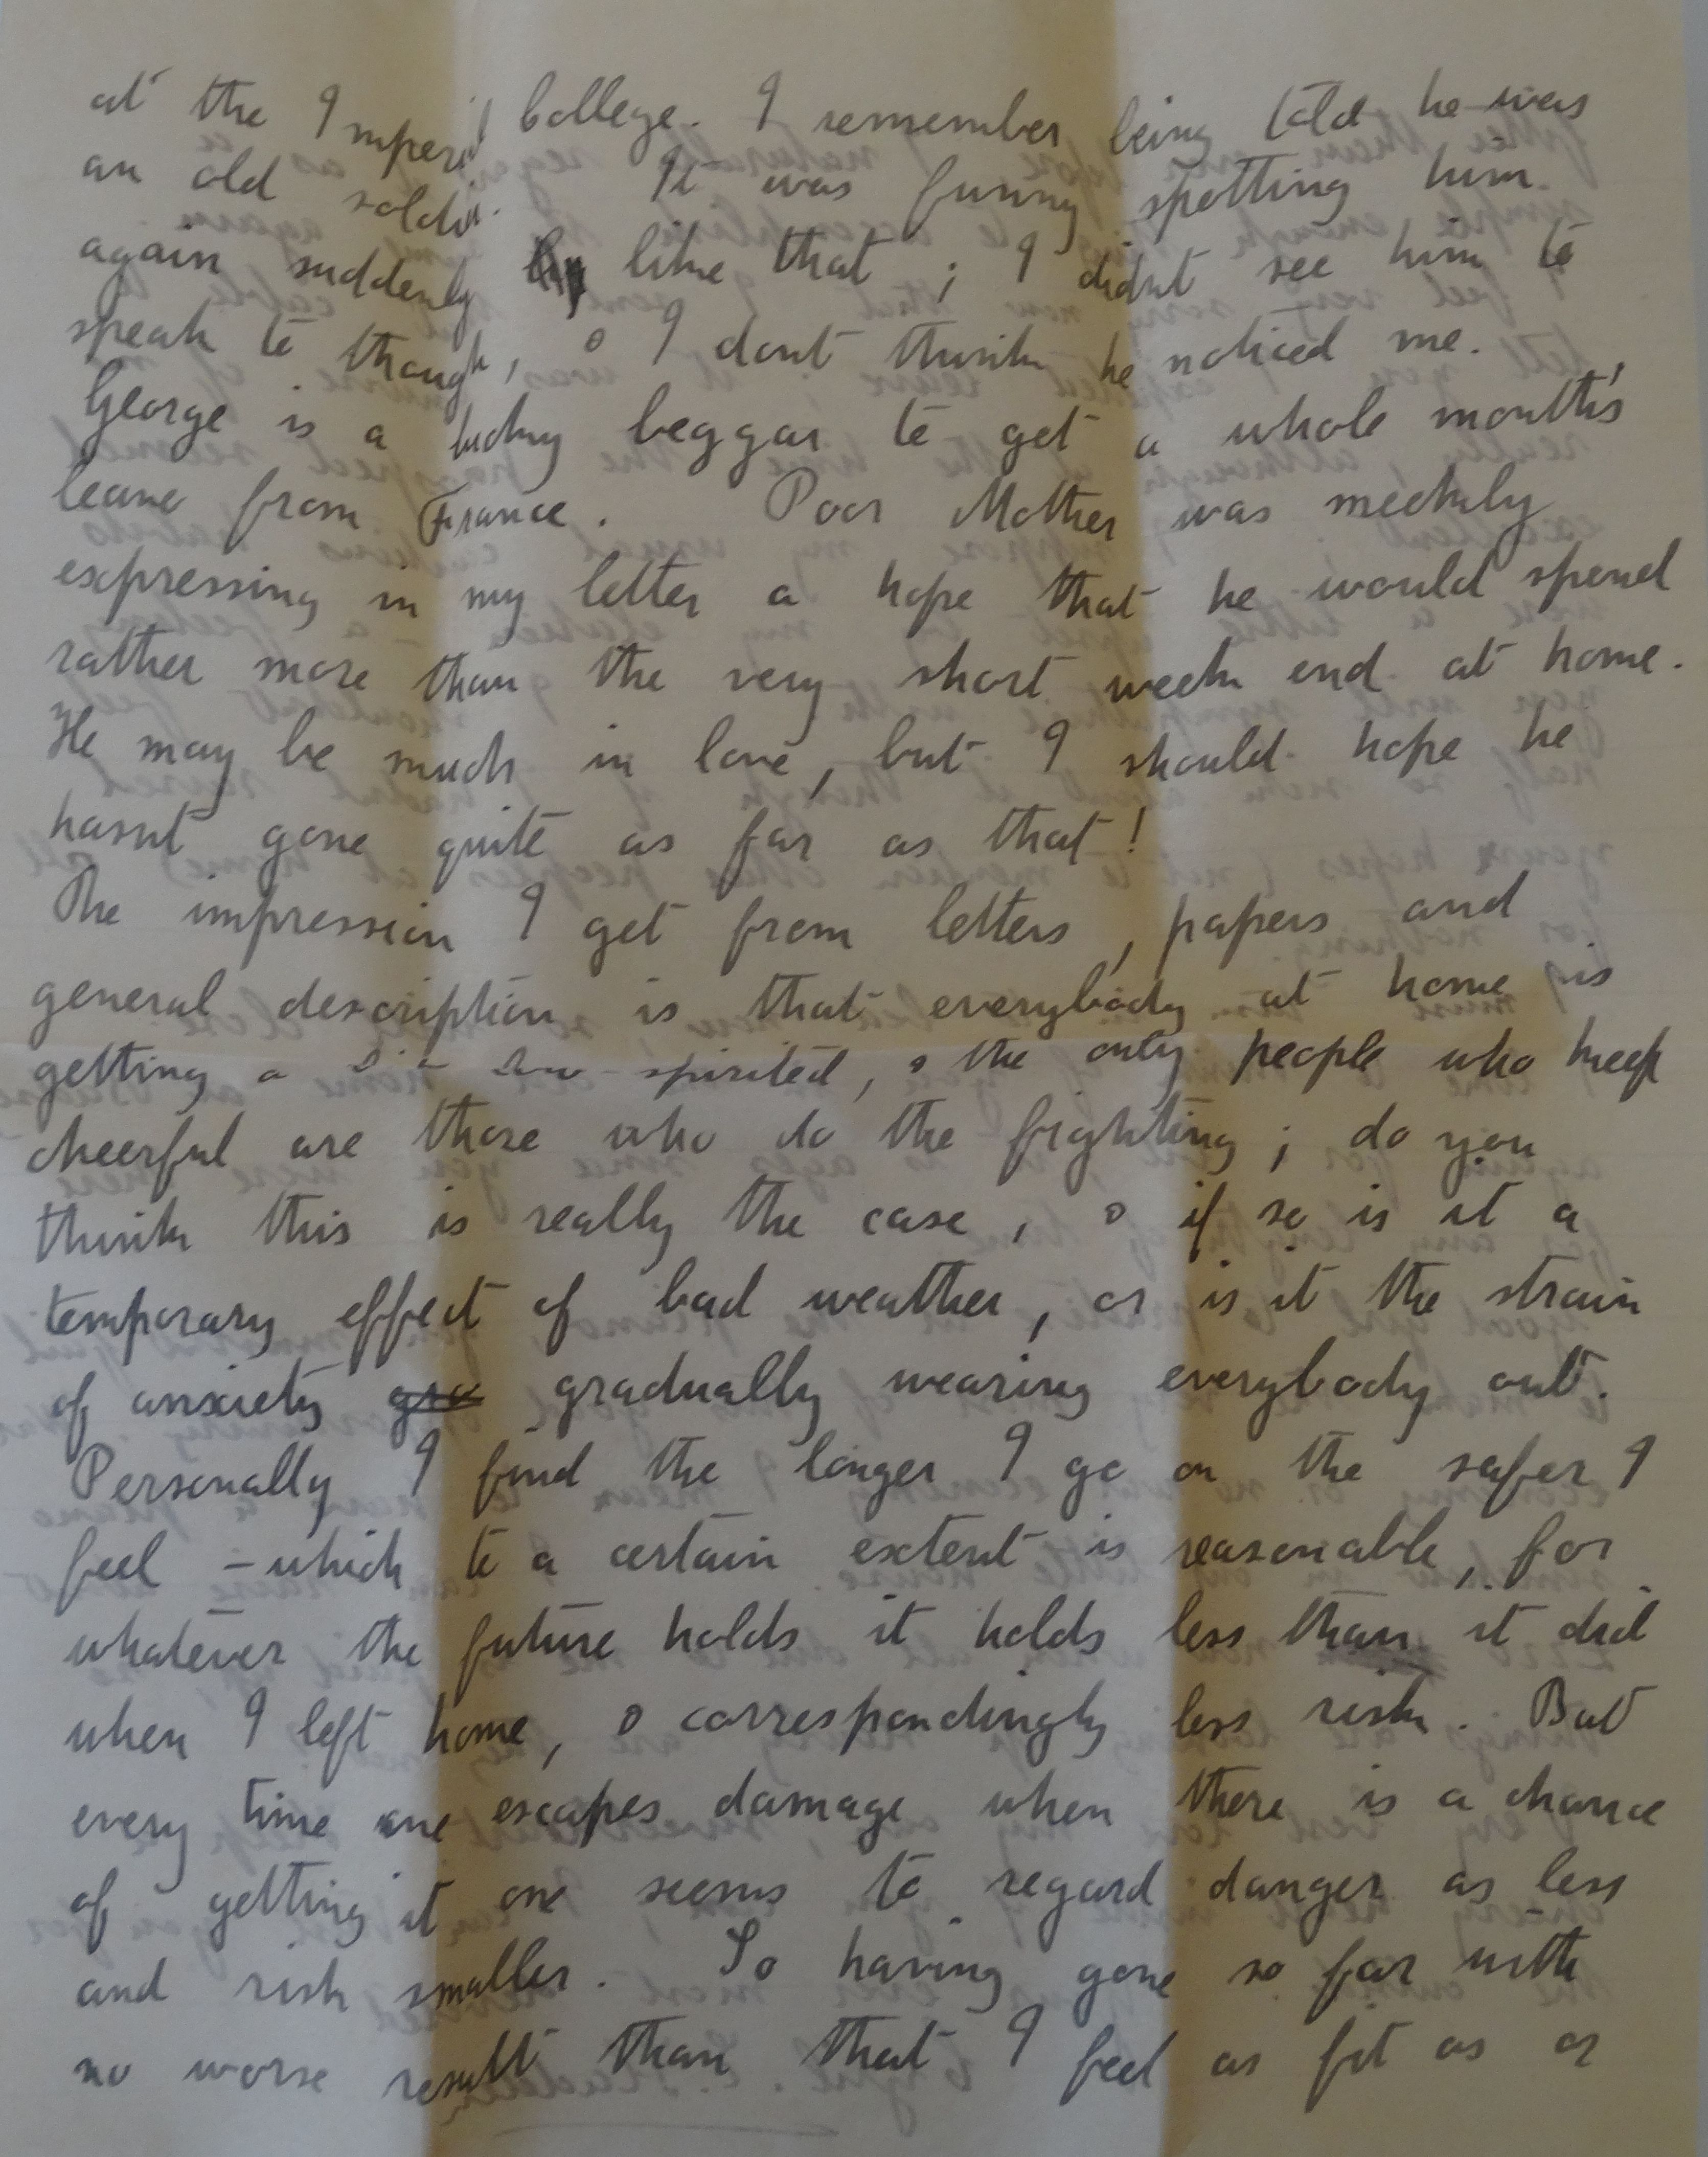 at the Imperial College. I remember being told he was
an old soldier. It was funny spotting him
again suddenly like that ; I didnt see him to
speak to though, & I dont think he noticed me.
George is a lucky beggar to get a whole month's
leave from France. Poor Mother was meekly
expressing in my letter a hope that he would spend
rather more than the very short week end at home.
He may be much in love, but I should hope he
hasnt gone quite as far as that!
The impression I get from letters, papers and
general description is that everybody at home is
getting a spirited, & the only people who keep
cheerful are those who do the fighting ; do you
think this is really the case, & if so is it a
temporary effect of bad weather, or is it the strain
of anxiety gra gradually wearing everybody out.
Personally I find the longer I go on the safer I
feel - which to a certain extent is reasonable, for
whatever the future holds it holds less than it did
when I left home, & correspondingly less risk. But
every time one escapes damage when there is a chance
of getting it one seems to regard danger as less
and risk smaller. So having gone so far with
no worse result than that I feel as fit as or